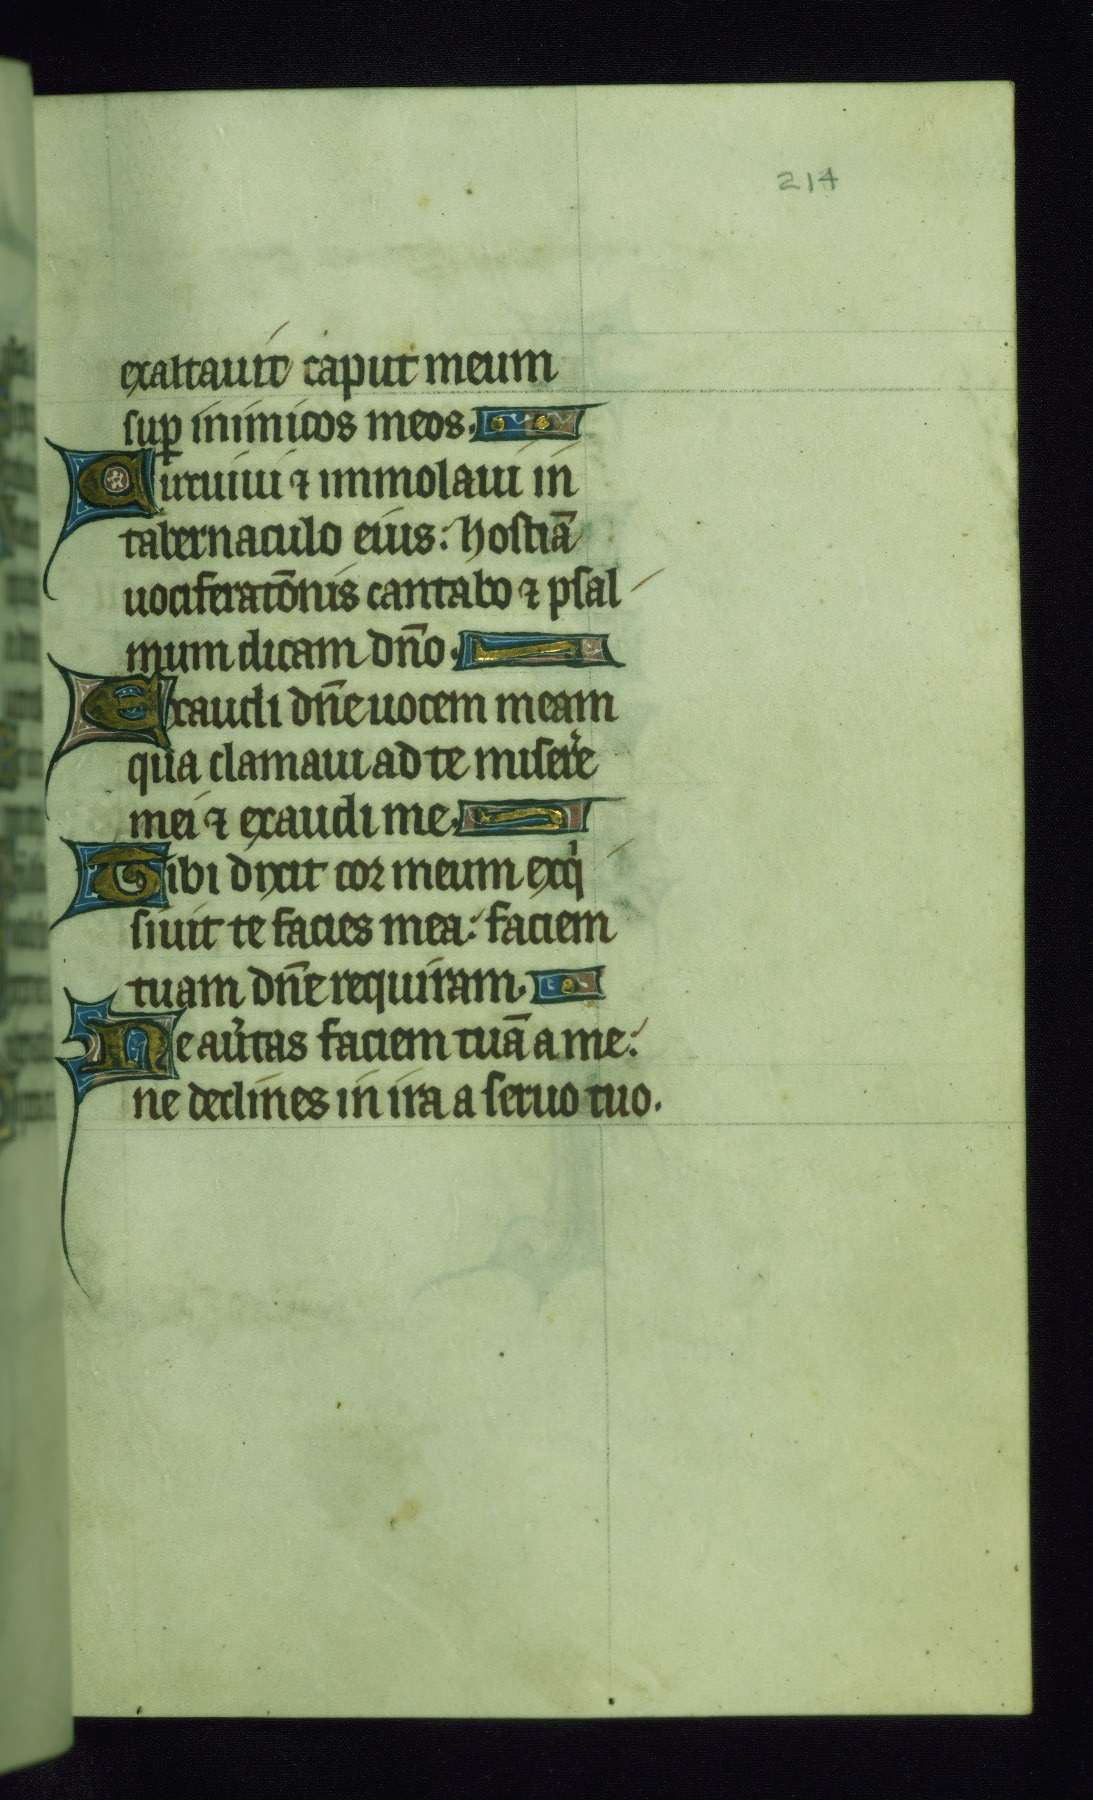 214
exaltauit caput meum
sup̱ inimicos meos.
Circuiui ⁊ immolaui in
tabernaculo eius: hostiā
uociferatōnis cantabo ⁊ psal
mum dicam dn̄o.
Exaudi dn̄e uocem meam
qua clamaui ad te misere
mei ⁊ exaudi me.
Tibi dixit cor meum exq̇
siuit te facies mea: faciem
tuam dn̄e requiram.
Ne au̾tas faciem tuā a me:
ne declines in ira a seruo tuo.